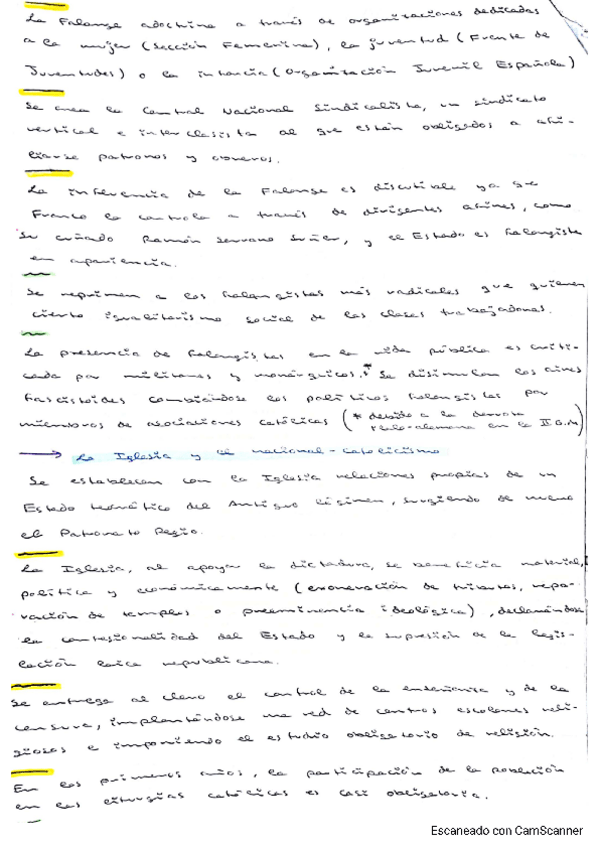 La Falange adoctrina a través de organizaciones dedicadas
a la mujer (Sección Femenina), la juventud (Frente de
Juventudes) o la infancia (Organización Juvenil Española)
Se crea la Central Nacional Sindicalista, un sindicato
vertical e interclasista al que están obligados a afi-
liarse patronos y obreros.
La influencia de la Falange es discutible ya que
Franco la controla a través de dirigentes afines, como
su cuñado Ramón Serrano Suñer, y el Estado es falangista
en apariencia.
Se reprimen a los falangistas más radicales que quieren
cierto igualitarismo social de las clases trabajadoras.
La presencia de falangistas en la vida pública es criti-
cada por militares y monárquicos.* Se disimulan los aires
fascistoides cambiándose los políticos falangistas por
miembros de asociaciones católicas (* debido a la derrota
italo-alemana en la II G.M)
→ La Iglesia y el nacional-catolicismo
Se establecen con la Iglesia relaciones propias de un
Estado teocrático del Antiguo Régimen, surgiendo de nuevo
el Patronato Regio.
La Iglesia, al apoyar la dictadura, se beneficia material,
política y económicamente (exoneración de tributos, repa-
ración de templos o preeminencia ideológica), declarándose
la confesionalidad del Estado y la supresión de la legis-
lación laica republicana.
Se entrega al clero el control de la enseñanza y de la
censura, implantándose una red de centros escolares reli-
giosos e imponiendo el estudio obligatorio de religión.
En los primeros años, la participación de la población
en las liturgias católicas es casi obligatoria.
Escaneado con CamScanner